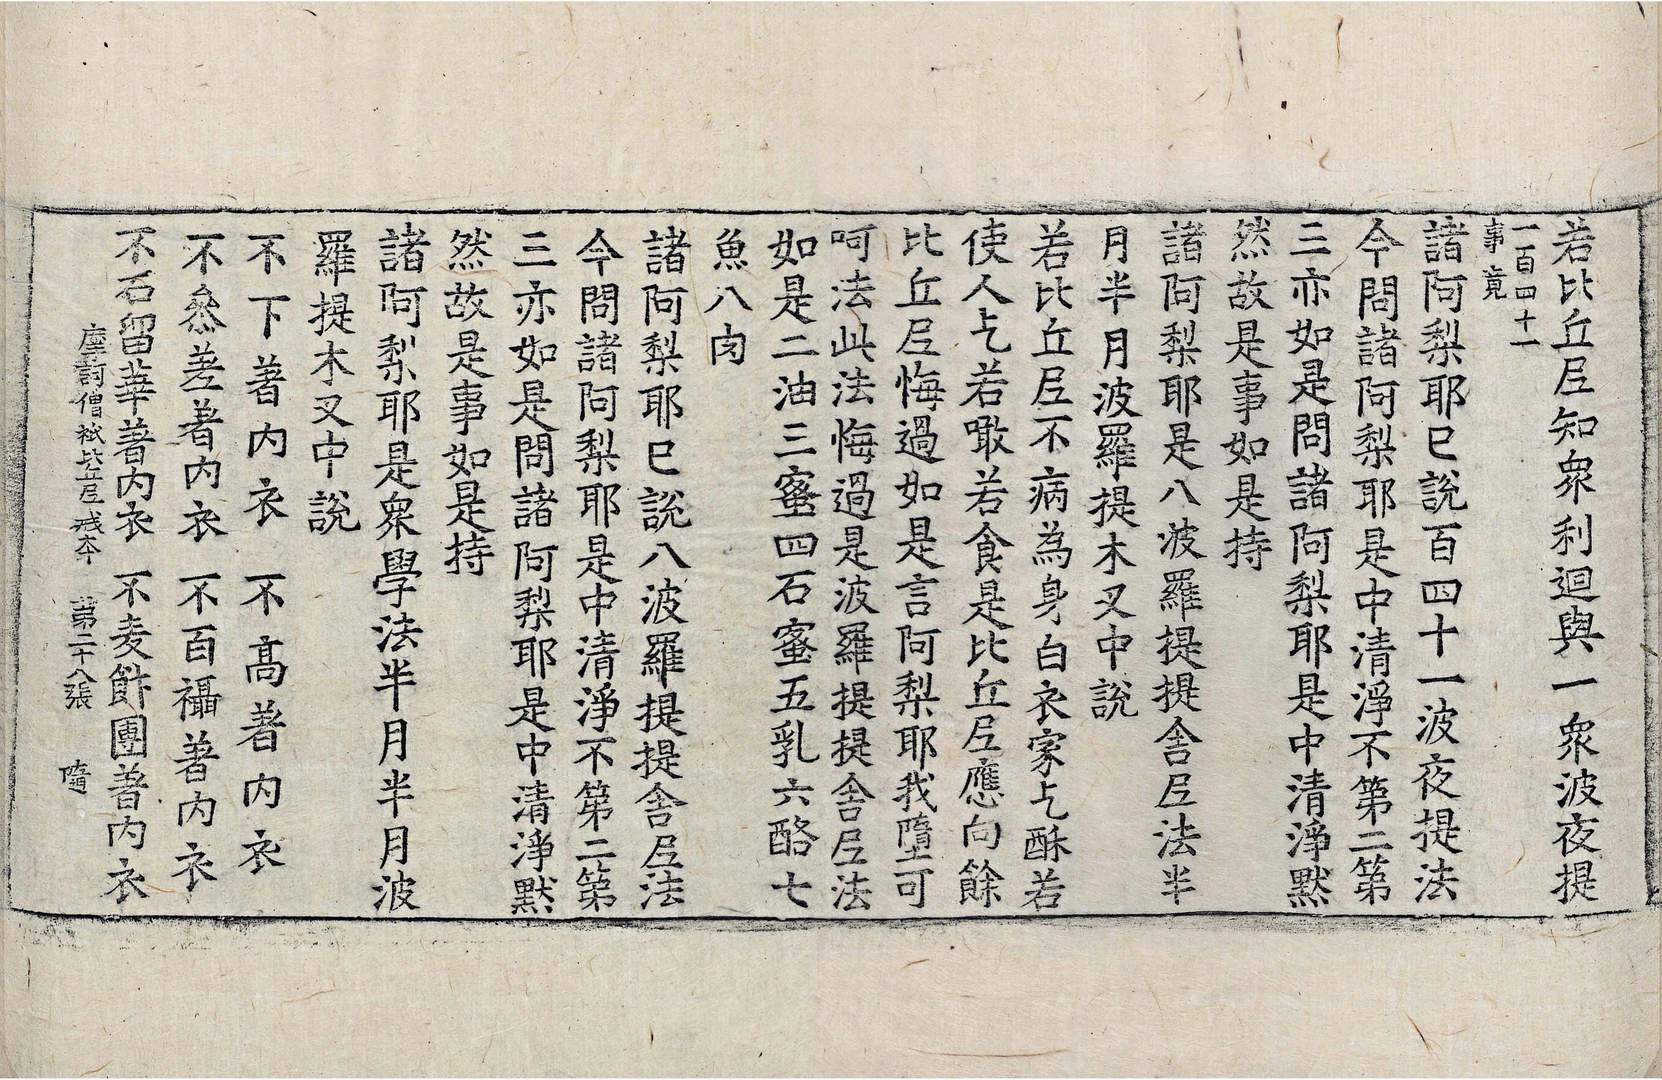 若比丘尼知衆利迴與一衆波夜提
一百四十一
事竟
諸阿梨耶已說百四十一波夜提法
今問諸阿梨耶是中清淨不第二第
三亦如是問諸阿梨耶是中清淨默
然故是事如是持
諸阿梨耶是八波羅提提舍尼法半
月半月波羅提木叉中說
若比丘尼不病為身白衣家乞酥若
使人乞若噉若食是比丘尼應向餘
比丘尼悔過如是言阿梨耶我墮可
呵法此法悔過是波羅提提舍尼法
如是二油三蜜四石蜜五乳六酪七
魚八肉
諸阿梨耶已說八波羅提提舍尼法
今問諸阿梨耶是中清淨不第二第
三亦如是問諸阿梨耶是中清淨默
然故是事如是持
諸阿梨耶是衆學法半月半月波
羅提木叉中說
不下著內衣　不高著內衣
不叅差著內衣　不百襵著內衣
不石留華著內衣　不麦䴵團著內衣
摩訶僧祇比丘尼戒本　第二十八張　隨